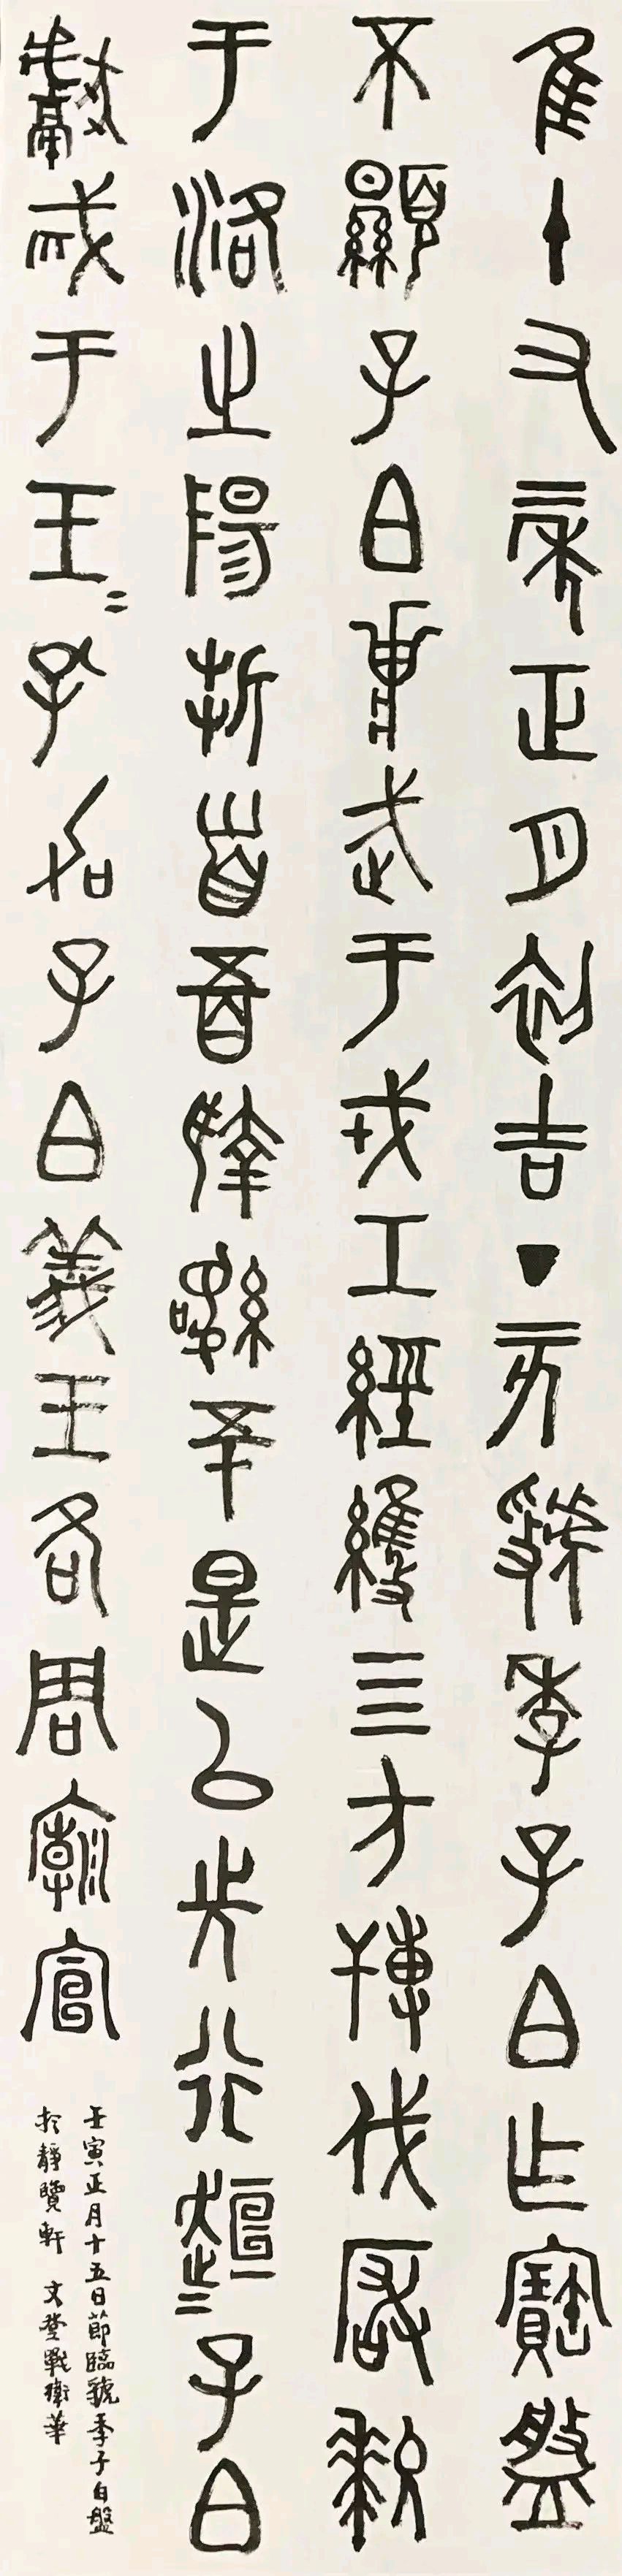 隹十又二年正月初吉丁亥虢季子白乍寶盤
不顯子白壯武于戎工經維三方搏伐玁狁
于洛之陽折首五百執訊五十是以先行趄=子白
獻馘于王=孔加子白義王各周廟宣
壬寅正月十五日節臨虢季子白盤
於靜覽軒 文登戰衛華